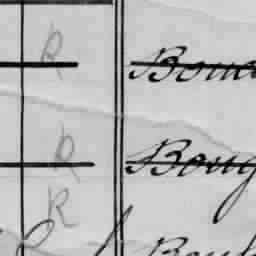 R Bou
R Boug
R
Bou